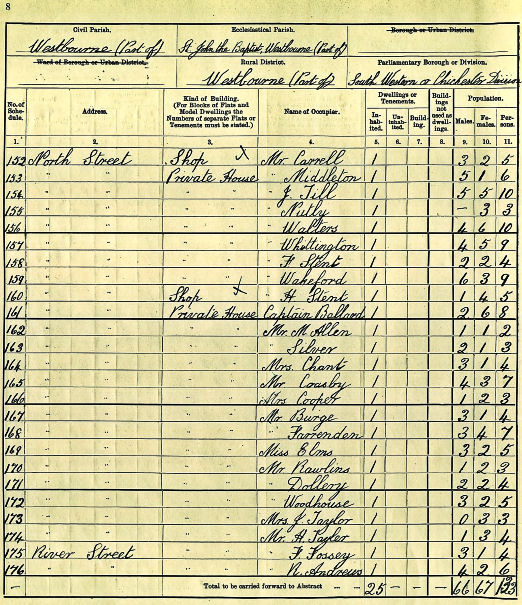 8
Civil Parish. Ecclesiastical Parish. Borough or Urban District.
Westbourne (Part of) St. John the Baptist, Westbourne (Part of)
Ward of Borough or Urban District. Rural District. Parliamentary Borough or Division.
Westbourne (Part of) South Western or Chichester Division
No. of Schedule. Address. Kind of Building. (For Blocks of Flats and Model Dwellings the Numbers of separate Flats or Tenements must be stated.) Name of Occupier. Dwellings or Tenements. Inhabited. Uninhabited. Building. Buildings not used as dwellings. Population. Males. Females. Persons.
1. 2. 3. 4. 5. 6. 7. 8. 9. 10. 11.
152 North Street Shop Mr. Carrell 1 3 2 5
153 " " Private House " Middleton 1 5 1 6
154 " " " " " J. Till 1 5 5 10
155 " " " " " Nutly 1 - 3 3
156 " " " " " Walters 1 4 6 10
157 " " " " " Whittington 1 4 5 9
158 " " " " " F Stent 1 2 2 4
159 " " " " " Wakeford 1 6 3 9
160 " " Shop " H Stent 1 1 4 5
161 " " Private House Captain Ballard 1 2 6 8
162 " " " " Mr. M Allen 1 1 1 2
163 " " " " " Silver 1 2 1 3
164 " " " " Mrs. Chant 1 3 1 4
165 " " " " Mr. Coasby 1 4 3 7
166 " " " " Mrs Cooper 1 1 2 3
167 " " " " Mr Burge 1 3 1 4
168 " " " " " Farrenden 1 3 4 7
169 " " " " Miss Elms 1 3 2 5
170 " " " " Mr. Rawlins 1 1 2 3
171 " " " " " Dollery 1 2 2 4
172 " " " " " Woodhouse 1 3 2 5
173 " " " " Mrs. J. Taylor 1 0 3 3
174 " " " " Mr. H. Tayler 1 1 3 4
175 River Street " " " F Fossey 1 3 1 4
176 " " " " " R. Andrews 1 4 2 6
— Total to be carried forward to Abstract 25 - - - 66 67 133